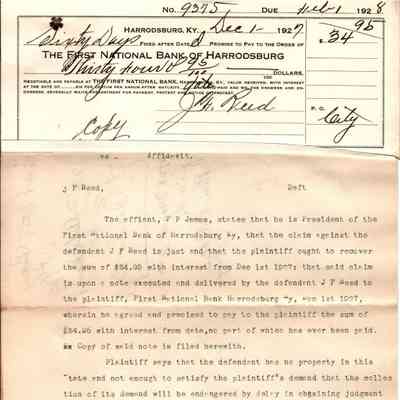 No. 9375 DUE Feb 1 1928
HARRODSBURG, KY. Dec 1- 1927
$ 34 95
Sixty Days FIXED AFTER DATE I PROMISE TO PAY TO THE ORDER OF
THE FIRST NATIONAL BANK OF HARRODSBURG
Thirty Four & 95/100 DOLLARS.
J. F. Reed
P. O. City
Copy
vs. Affidavit.
J F Reed, Deft
The affiant, F P James, states that he is President of the
First National Bank of Harrodsburg Ky, that the claim against the
defendent J F Reed is just and that the plaintiff ought to recover
the sum of $34.95 with interest from Dec 1st 1927; that said claim
is upon a note executed and delivered by the defendent J F Reed to
the plaintiff, First National Bank Harrodsburg Ky, 1st 1927,
wherein he agreed and promised to pay to the plaintiff the sum of
$34.95 with interest from date,no part of which has ever been paid.
Copy of said note is filed herewith.
Plaintiff says that the defendant has no property in this
State and not enough to satisfy the plaintiff's demand that the collec
tion of its demand will be endangered by delay in obtaining judgment